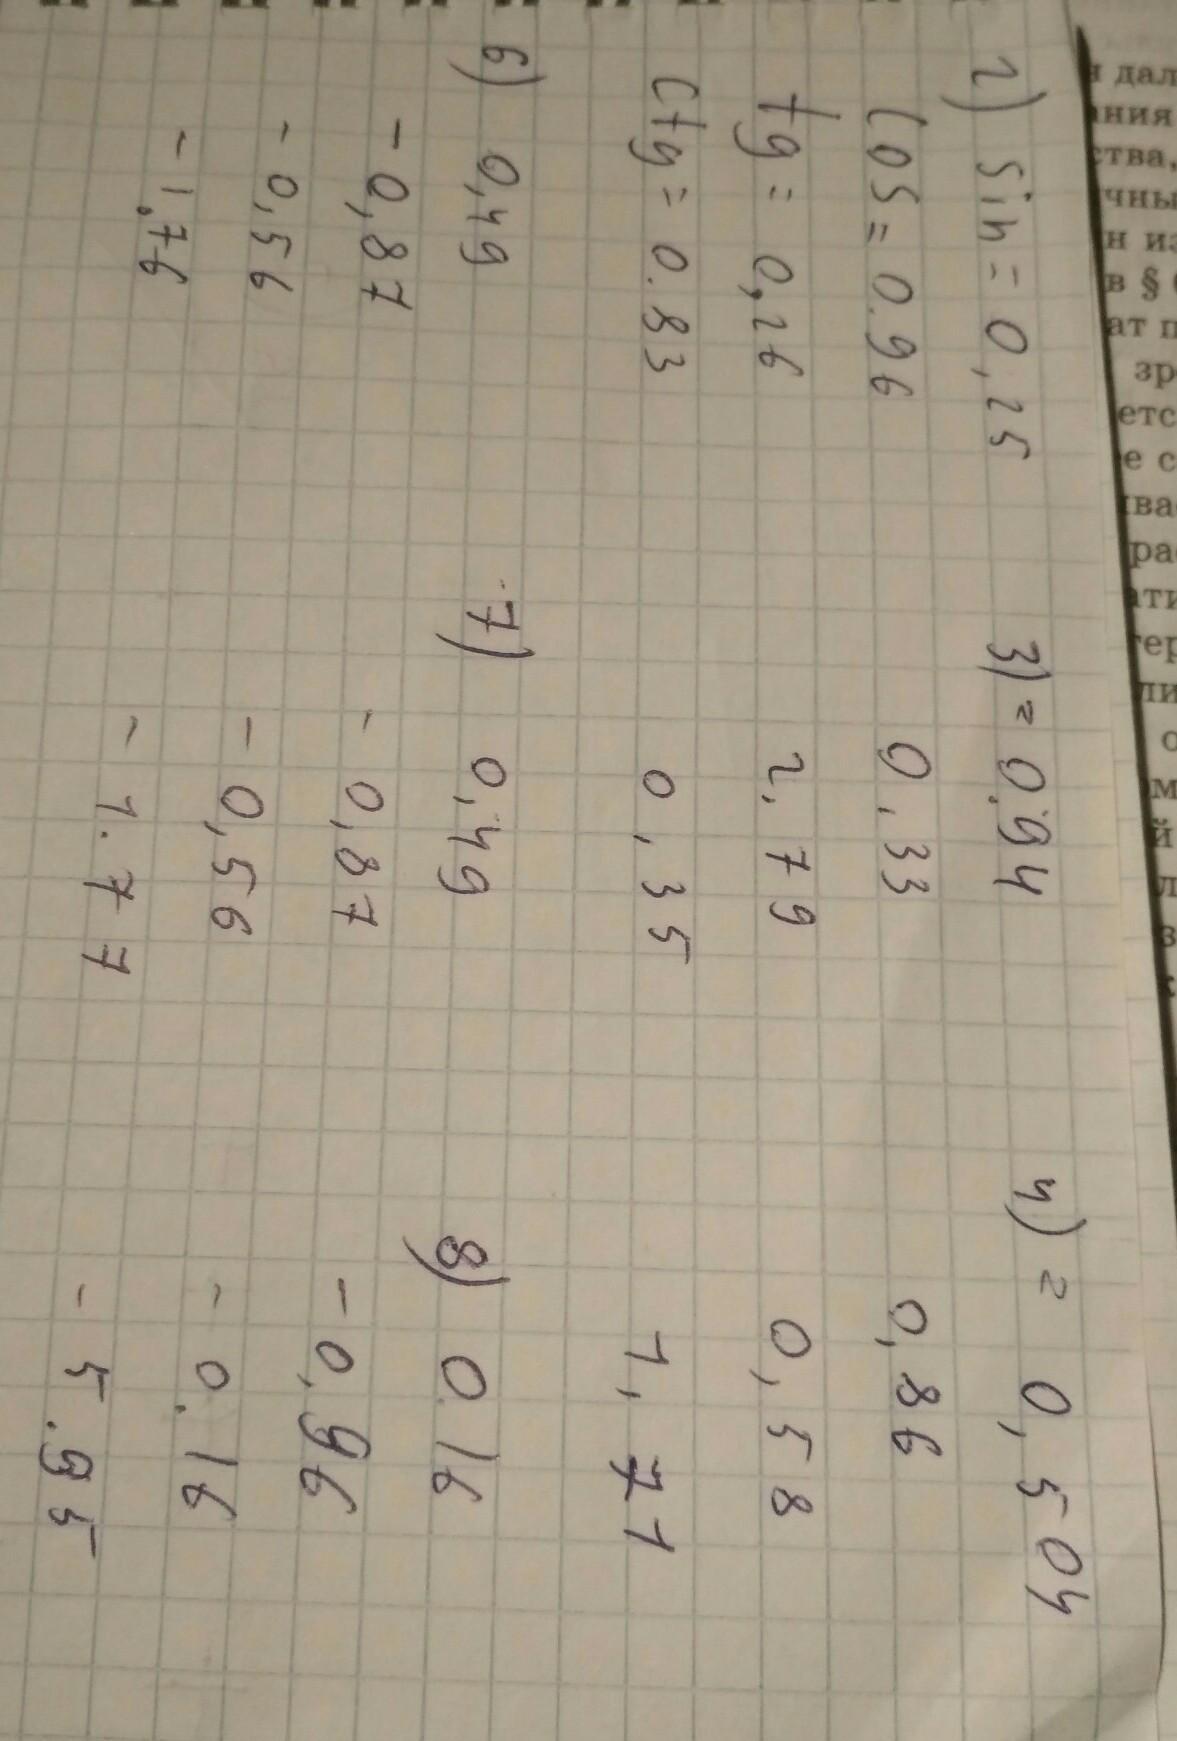 2) sin = 0,25 3) = 0,94 4) = 0,504
cos = 0.96 0,33 0,86
tg = 0,26 2,79 0,58
ctg = 0.83 0,35 1,71
6) 0,49 7) 0,49 8) 0.16
- 0,87 - 0,87 - 0,96
- 0,56 - 0,56 - 0.16
- 1,76 - 1.77 - 5.95